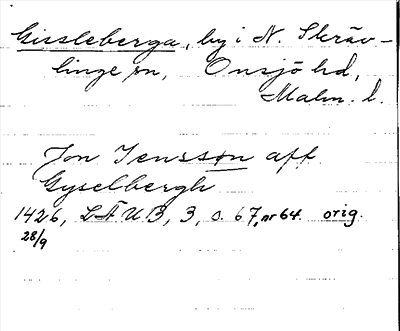 Gissleberga, by i N. Skräv-
linge sn, Onsjö hd,
Malm. l.
Jon Jensson aff
Gyselbergh
1426, LÄUB, 3, s. 67, nr 64. orig.
28/9